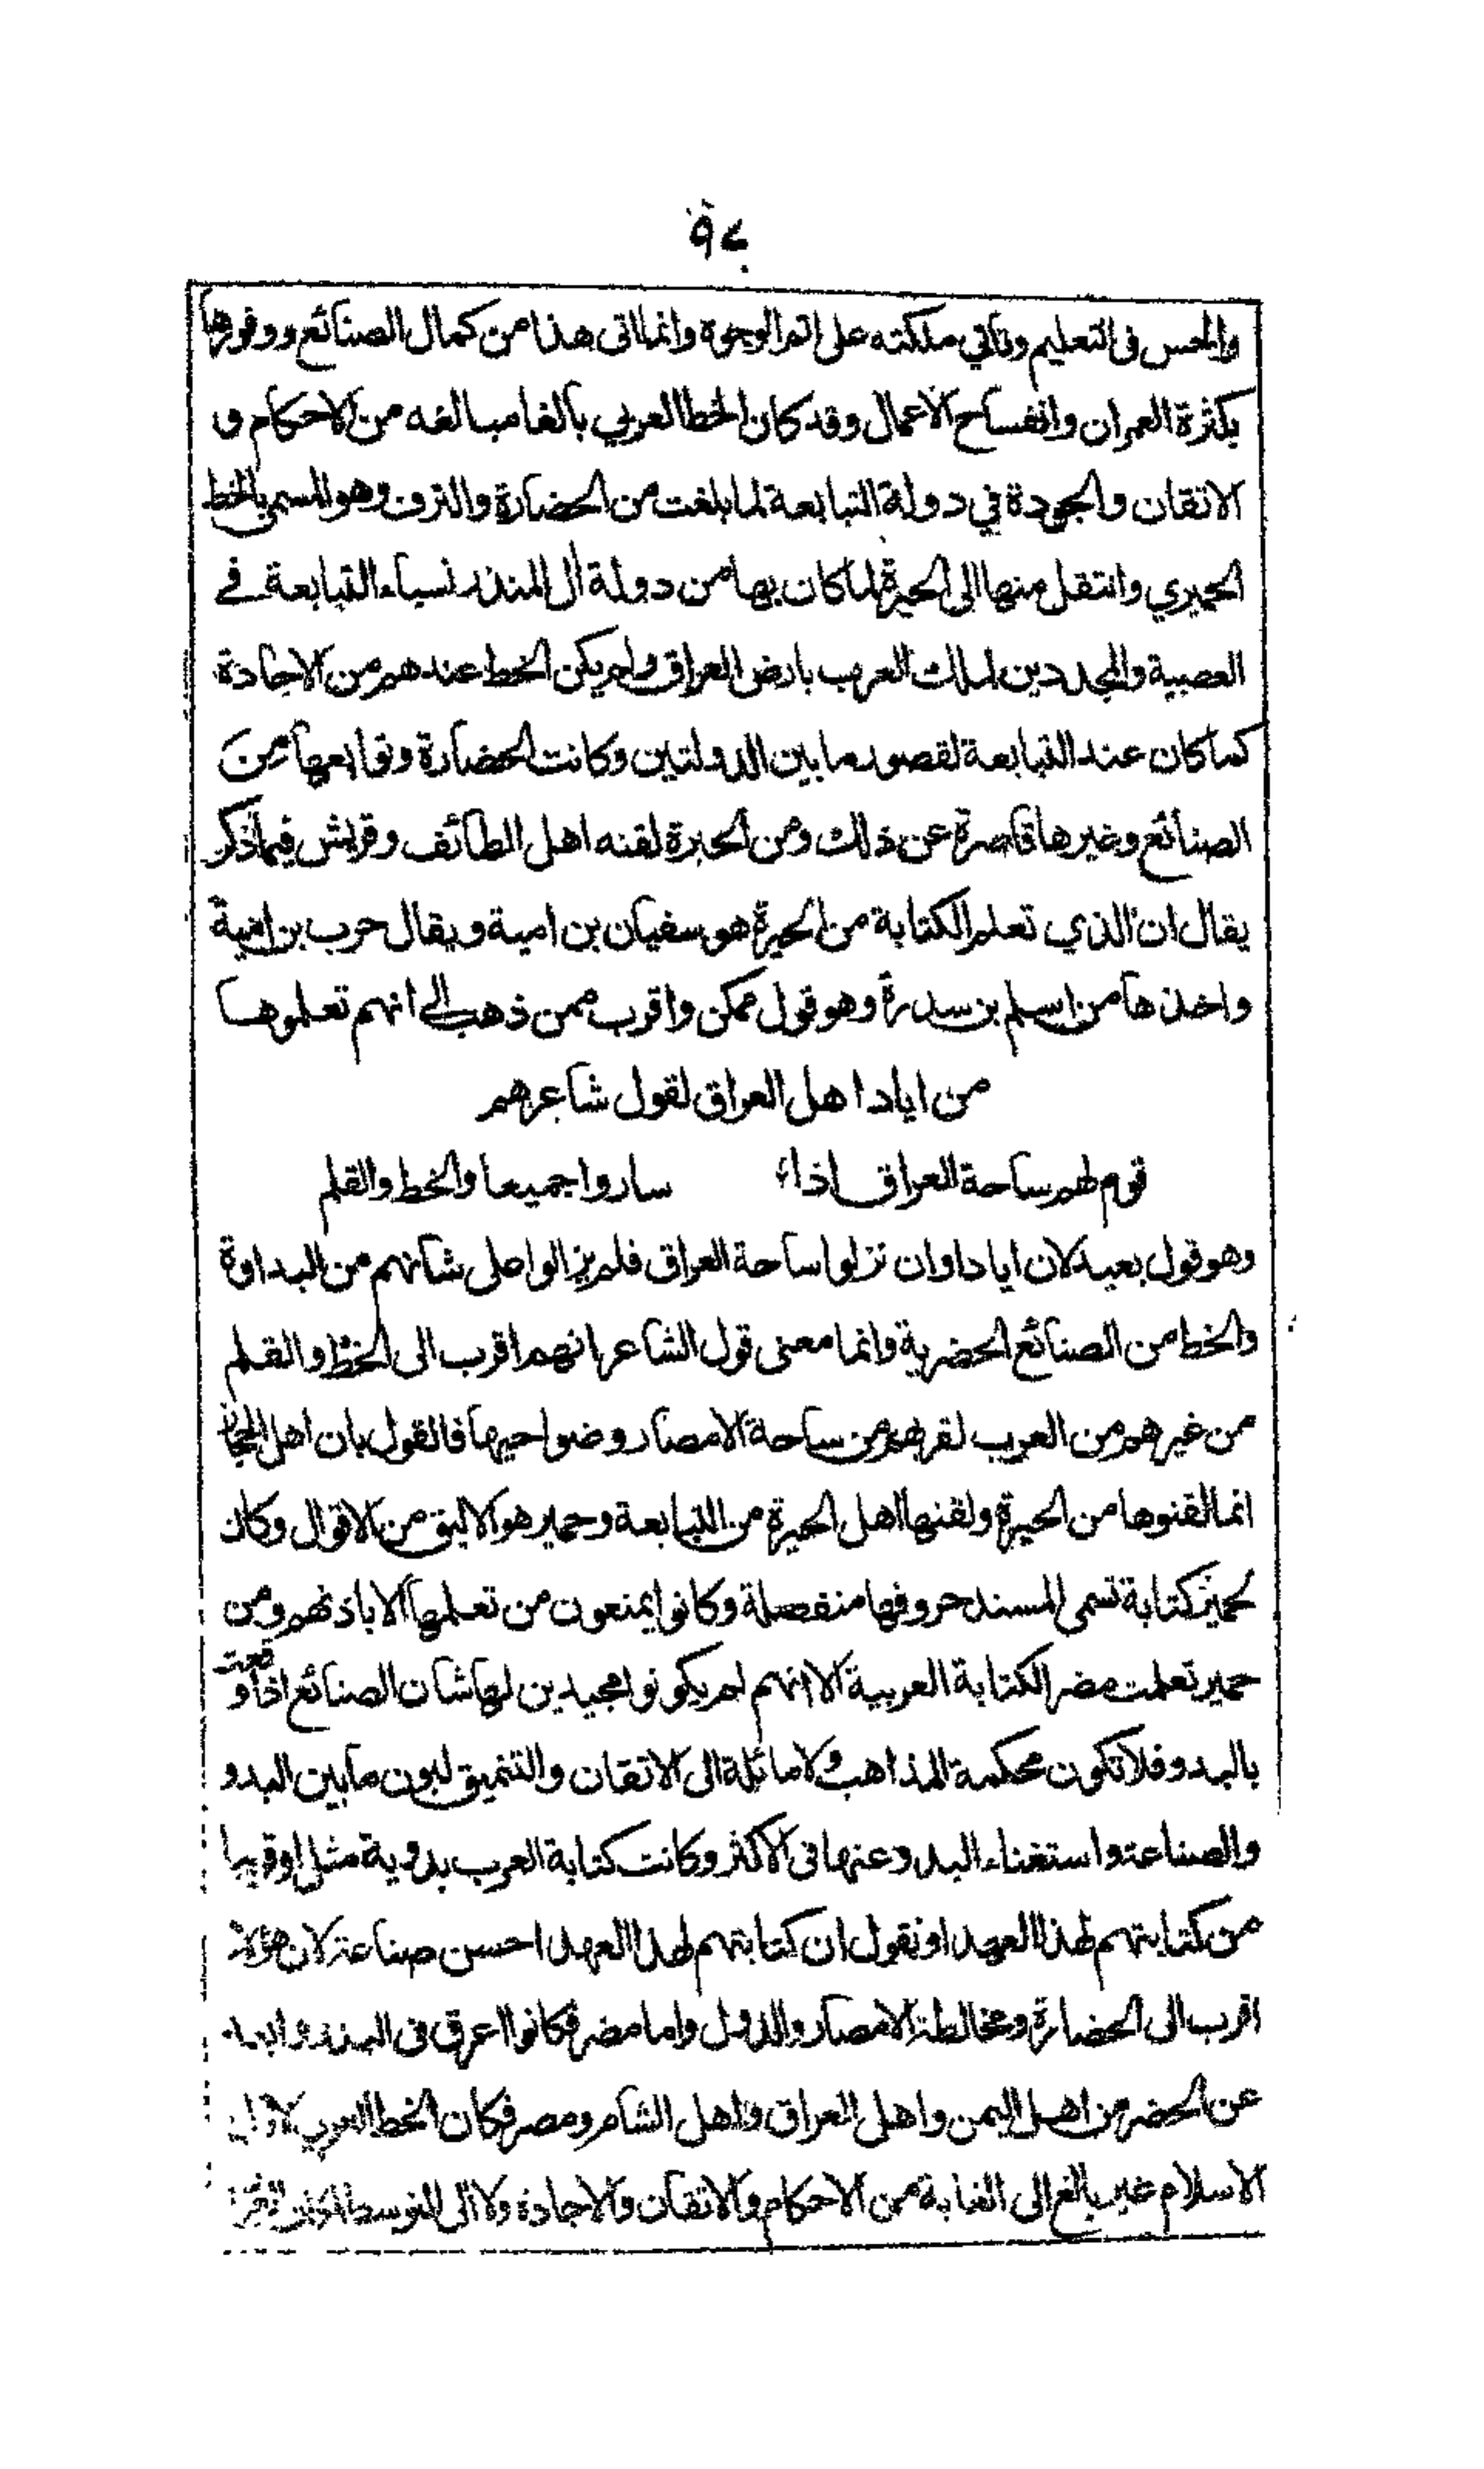 ٩٧
والحس فى التعليم وتأتي ملكته على اتم الوجوه وانما اتى هذا من كمال الصنائع ووفورها
بكثرة العمران وانفساح الاعمال وقد كان الخط العربي بالغا مبالغه من الاحكام و
الاتقان والجودة في دولة التبابعة لما بلغت من الحضارة والترف وهو المسمى بالخط
الحميري وانتقل منها الى الحيرة لما كان بها من دولة أل المنذر نسباء التبابعة في
العصبية والمجددين لملك العرب بارض العراق ولم يكن الخط عندهم من الاجادة
كما كان عند التبابعة لقصور ما بين الدولتين وكانت الحضارة وتوابعها من
الصنائع وغيرها قاصرة عن ذلك ومن الحيرة لقنه اهل الطائف وقريش فيما ذكر
يقال ان الذي تعلم الكتابة من الحيرة هو سفيان بن امية ويقال حرب بن امية
واخذها من اسلم بن سدرة وهو قول ممكن واقرب ممن ذهب الى انهم تعلموها
من اياد اهل العراق لقول شاعرهم
قوم لهم ساحة العراق اذا ساروا جميعا والخط والقلم
وهو قول بعيد لان ايادا وان نزلوا ساحة العراق فلم يزالوا على شانهم من البداوة
والخط من الصنائع الحضرية وانما معنى قول الشاعر انهم اقرب الى الخط والقلم
من غيرهم من العرب لقربهم من ساحة الامصار وضواحيها فالقول بان اهل الحجاز
انما لقنوها من الحيرة ولقنها اهل الحيرة من التبابعة وحمير هو الاليق من الاقوال وكان
لحمير كتابة تسمى المسند حروفها منفصلة وكانوا يمنعون من تعلمها الا باذنهم ومن
حمير تعلمت مضر الكتابة العربية الا انهم لم يكونوا مجيدين لها شان الصنائع اذا وقعت
بالبدو فلا تكون محكمة المذاهب ولا مائلة الى الاتقان والتنميق لبون ما بين البدو
والصناعة واستغناء البدو عنها فى الاكثر وكانت كتابة العرب بدوية مثل او قريبا
من كتابتهم لهذا العهد او نقول ان كتابتهم لهذا العهد احسن صناعة لان هؤلاء
اقرب الى الحضارة ومخالطة الامصار والدول واما مضر فكانوا اعرق فى البدو وابعد
عن الحضر من اهل اليمن واهل العراق واهل الشام ومصر فكان الخط العربي لاول
الاسلام غير بالغ الى الغاية من الاحكام والاتقان والاجادة ولا الى التوسط